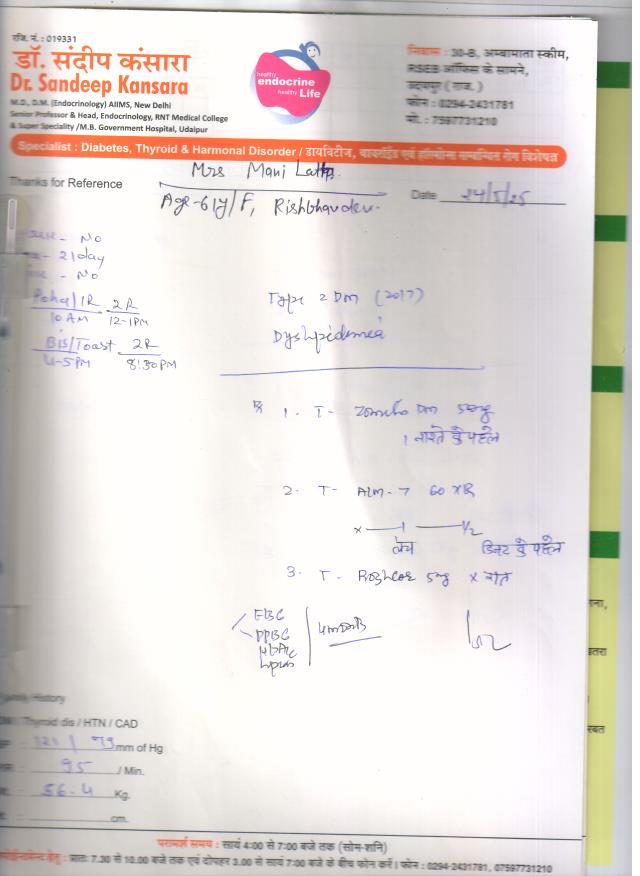 रजि. नं. : 019331
डॉ. संदीप कंसारा
Dr. Sandeep Kansara
M.D., D.M. (Endocrinology) AIIMS, New Delhi
Senior Professor & Head, Endocrinology, RNT Medical College
& Super Speciality /M.B. Government Hospital, Udaipur
healthy
endocrine
healthy Life
निवास : 30-B, अम्बामाता स्कीम,
RSEB ऑफिस के सामने,
उदयपुर (राज.)
फोन : 0294-2431781
मो. : 7597731210
Specialist : Diabetes, Thyroid & Harmonal Disorder / डायबिटीज, थायरॉइड एवं हॉरमोन्स सम्बन्धित रोग विशेषज्ञ
Thanks for Reference
Mrs Mani Latta
Age-61y/F, Rishbhavdev.
Date 24/5/25
- No
- 21day
- No
Poha/1R 2R
10AM 12-1PM
Bis/Toast 2R
4-5PM 8:30PM
Type 2 Dm (2017)
Dyslipidemea
Rx 1. T- DM 50mg
1 नाश्ते के पहले
2. T- 60 XR
x 1 1/2
लंच डिनर के पहले
3. T- 5mg x रात
FBG
PPBG
HbA1c
Lipids
Family History
DM / Thyroid dis / HTN / CAD
121 / 79 mm of Hg
95 / Min.
56.4 Kg.
cm.
परामर्श समय : सायं 4:00 से 7:00 बजे तक (सोम-शनि)
हेतु : प्रातः 7.30 से 10.00 बजे तक एवं दोपहर 3.00 से सायं 7:00 बजे के बीच फोन करें। फोन : 0294-2431781, 07597731210